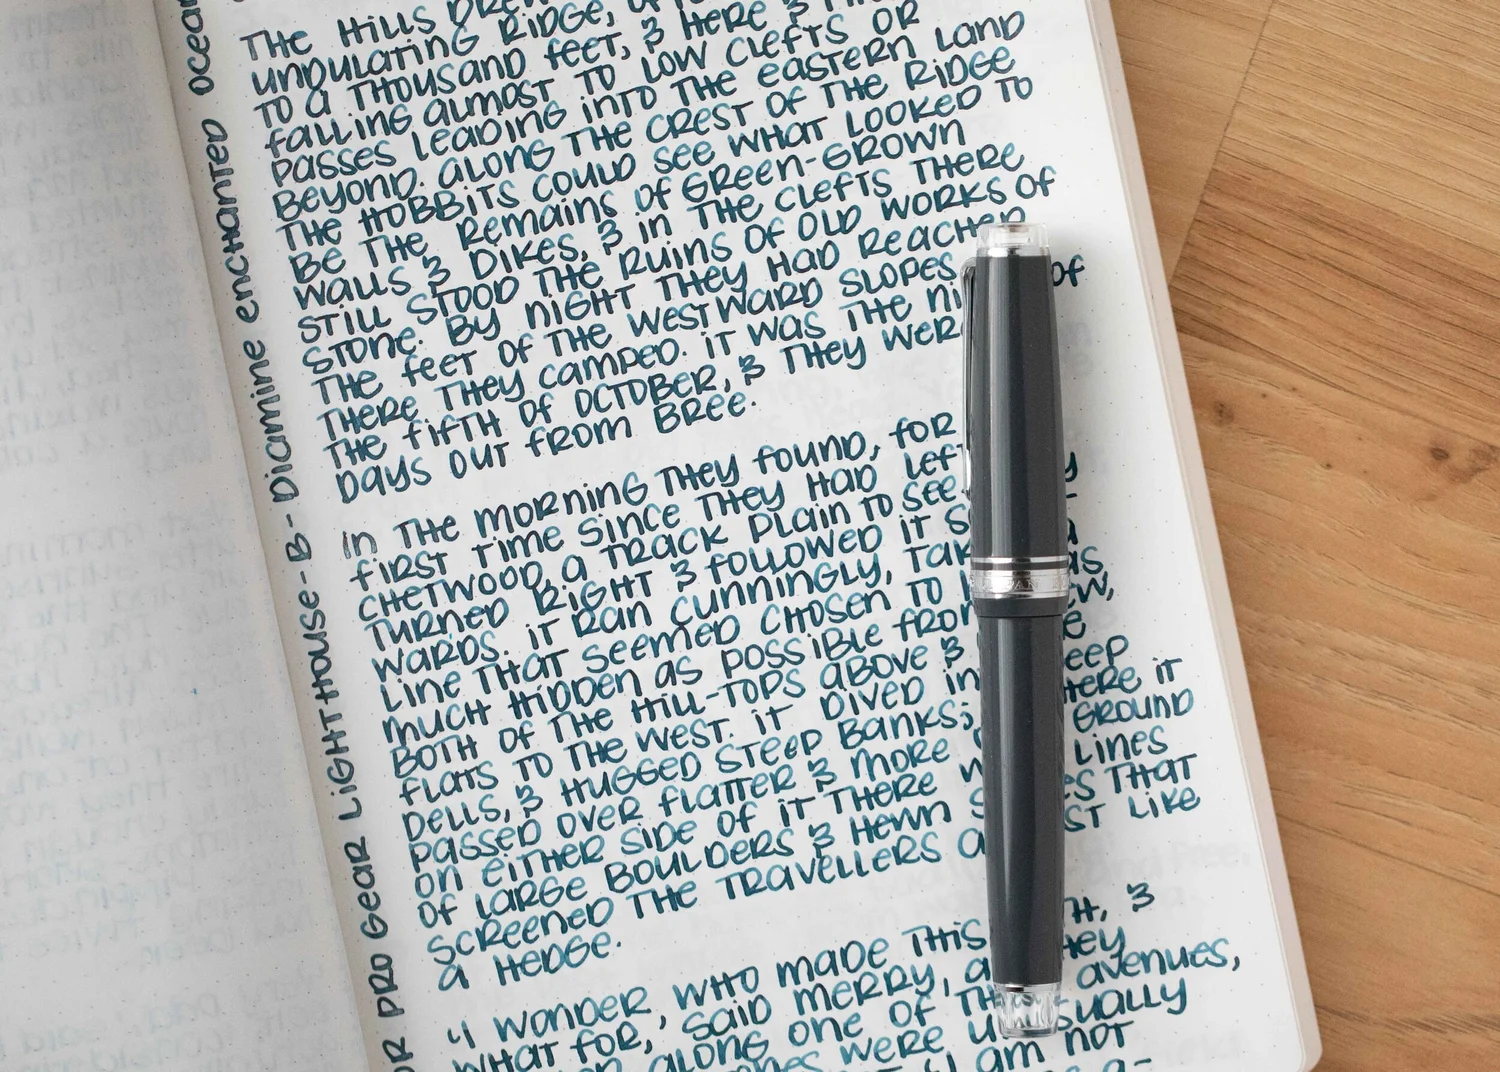 THE HILLS DREW
UNDULATING RIDGE,
TO A THOUSAND FEET, & HERE &
FALLING ALMOST TO LOW CLEFTS OR
PASSES LEADING INTO THE EASTERN LAND
BEYOND. ALONG THE CREST OF THE RIDGE
THE HOBBITS COULD SEE WHAT LOOKED TO
BE THE REMAINS OF GREEN-GROWN
WALLS & DIKES, & IN THE CLEFTS THERE
STILL STOOD THE RUINS OF OLD WORKS OF
STONE. BY NIGHT THEY HAD REACHED
THE FEET OF THE WESTWARD SLOPES, OF
THERE THEY CAMPED. IT WAS THE NI
THE FIFTH OF OCTOBER, & THEY WERE
DAYS OUT FROM BREE.
IN THE MORNING THEY FOUND, FOR
FIRST TIME SINCE THEY HAD LEFT
CHETWOOD, A TRACK PLAIN TO SEE.
TURNED RIGHT & FOLLOWED IT S
WARDS. IT RAN CUNNINGLY, TAK A
LINE THAT SEEMED CHOSEN TO AS
MUCH HIDDEN AS POSSIBLE FROM EW,
BOTH OF THE HILL-TOPS ABOVE & E
FLATS TO THE WEST. IT DIVED IN EEP
DELLS, & HUGGED STEEP BANKS; HERE IT
PASSED OVER FLATTER & MORE GROUND
ON EITHER SIDE OF IT THERE W LINES
OF LARGE BOULDERS & HEWN S ES THAT
SCREENED THE TRAVELLERS A ST LIKE
A HEDGE.
"I WONDER, WHO MADE THIS H, &
WHAT FOR, SAID MERRY, A HEY
ALONG ONE OF TH AVENUES,
WERE U SUALLY
I AM NOT
OR PRO GEAR LIGHTHOUSE - B - DIAMINE ENCHANTED OCEAN